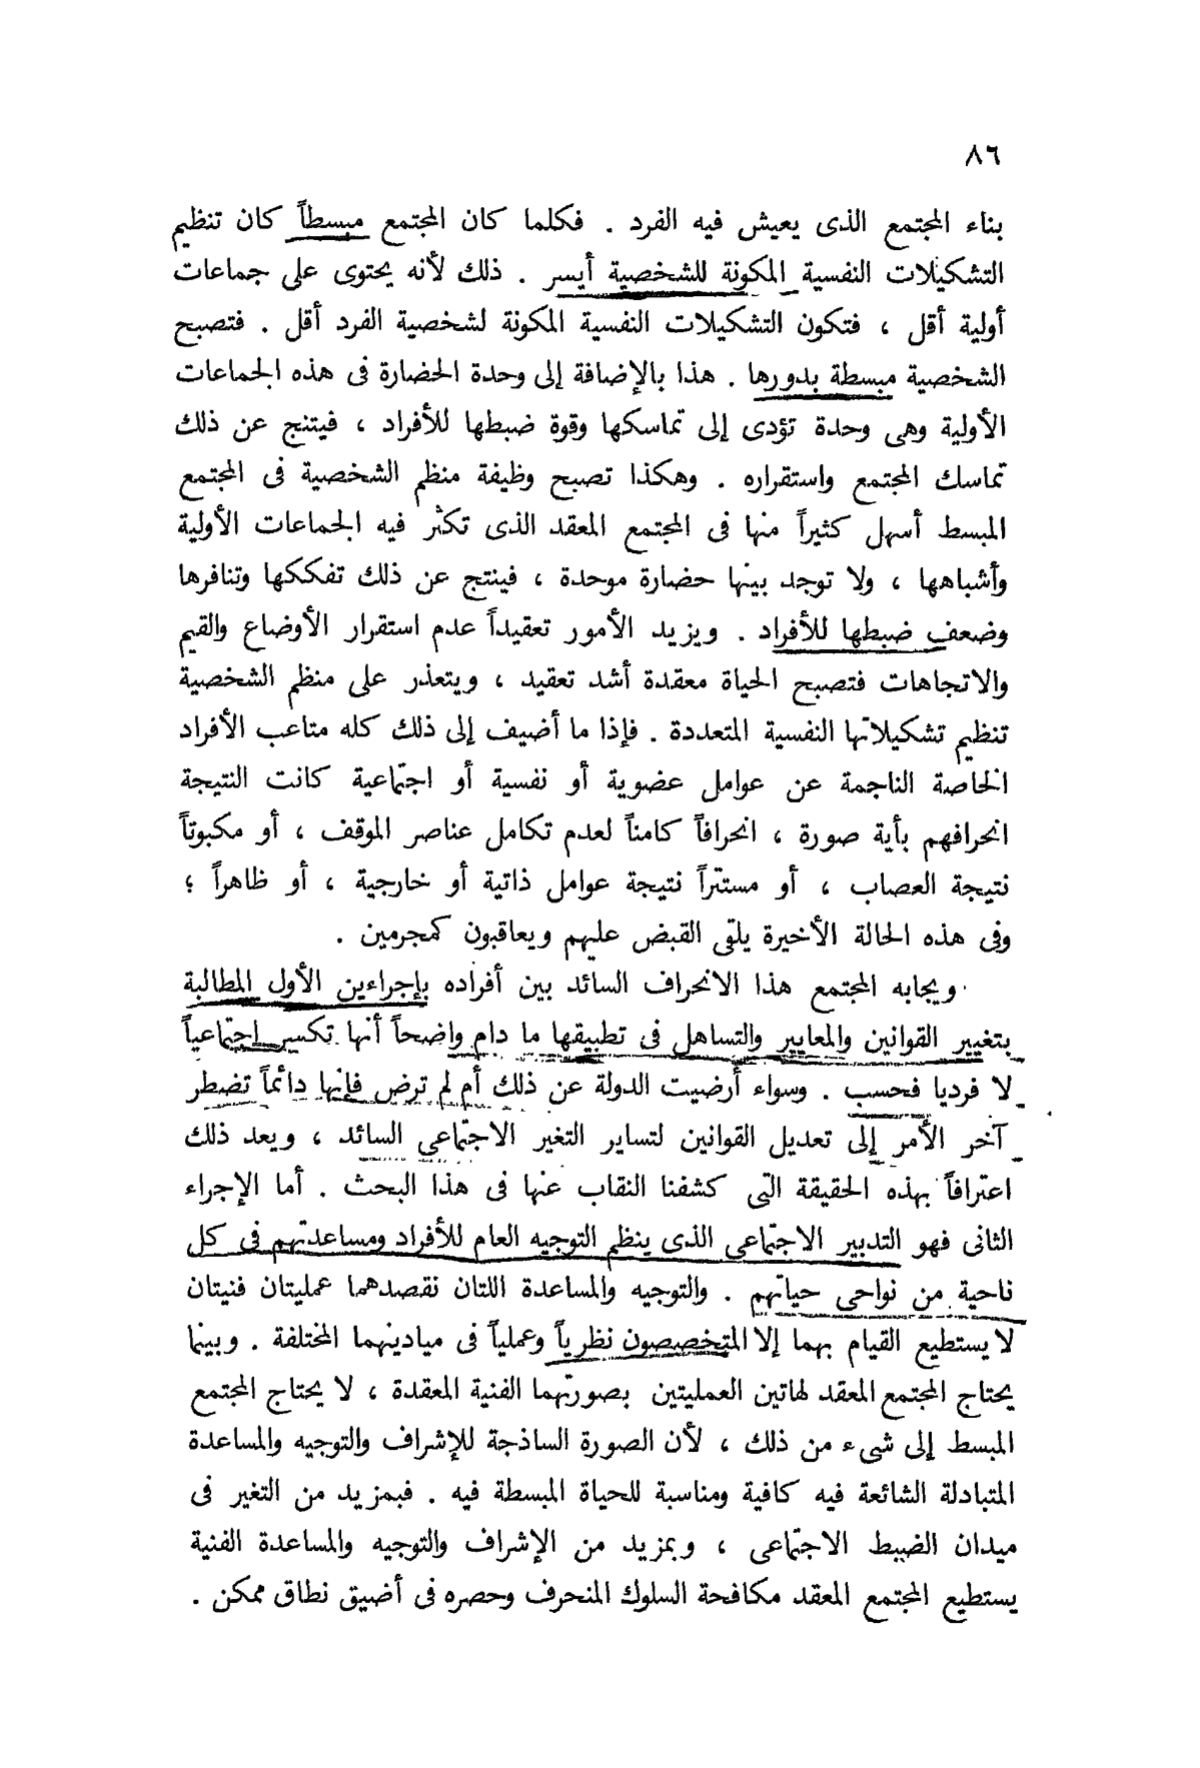 ٨٦
بناء المجتمع الذى يعيش فيه الفرد . فكلما كان المجتمع مبسطاً كان تنظيم
التشكيلات النفسية المكونة للشخصية أيسر . ذلك لأنه يحتوى على جماعات
أولية أقل ، فتكون التشكيلات النفسية المكونة لشخصية الفرد أقل . فتصبح
الشخصية مبسطة بدورها . هذا بالإضافة إلى وحدة الحضارة فى هذه الجماعات
الأولية وهى وحدة تؤدى إلى تماسكها وقوة ضبطها للأفراد ، فيتنج عن ذلك
تماسك المجتمع واستقراره . وهكذا تصبح وظيفة منظم الشخصية فى المجتمع
المبسط أسهل كثيراً منها فى المجتمع المعقد الذى تكثر فيه الجماعات الأولية
وأشباهها ، ولا توجد بينها حضارة موحدة ، فينتج عن ذلك تفككها وتنافرها
وضعف ضبطها للأفراد . ويزيد الأمور تعقيداً عدم استقرار الأوضاع والقيم
والاتجاهات فتصبح الحياة معقدة أشد تعقيد ، ويتعذر على منظم الشخصية
تنظيم تشكيلاتها النفسية المتعددة . فإذا ما أضيف إلى ذلك كله متاعب الأفراد
الخاصة الناجمة عن عوامل عضوية أو نفسية أو اجتماعية كانت النتيجة
انحرافهم بأية صورة ، انحرافاً كامناً لعدم تكامل عناصر الموقف ، أو مكبوتاً
نتيجة العصاب ، أو مستتراً نتيجة عوامل ذاتية أو خارجية ، أو ظاهراً ؛
وفى هذه الحالة الأخيرة يلقى القبض عليهم ويعاقبون كمجرمين .
ويجابه المجتمع هذا الانحراف السائد بين أفراده بإجراءين الأول المطالبة
بتغيير القوانين والمعايير والتساهل فى تطبيقها ما دام واضحاً أنها تكسر اجتماعياً
لا فرديا فحسب . وسواء أرضيت الدولة عن ذلك أم لم ترض فإنها دائماً تضطر
آخر الأمر إلى تعديل القوانين لتساير التغير الاجتماعى السائد ، ويعد ذلك
اعترافاً بهذه الحقيقة التى كشفنا النقاب عنها فى هذا البحث . أما الإجراء
الثانى فهو التدبير الاجتماعى الذى ينظم التوجيه العام للأفراد ومساعدتهم فى كل
ناحية من نواحى حياتهم . والتوجيه والمساعدة اللتان نقصدهما عمليتان فنيتان
لا يستطيع القيام بهما إلا المتخصصون نظرياً وعملياً فى ميادينهما المختلفة . وبينما
يحتاج المجتمع المعقد لهاتين العمليتين بصورتهما الفنية المعقدة ، لا يحتاج المجتمع
المبسط إلى شىء من ذلك ، لأن الصورة الساذجة للإشراف والتوجيه والمساعدة
المتبادلة الشائعة فيه كافية ومناسبة للحياة المبسطة فيه . فبمزيد من التغير فى
ميدان الضبط الاجتماعى ، وبمزيد من الإشراف والتوجيه والمساعدة الفنية
يستطيع المجتمع المعقد مكافحة السلوك المنحرف وحصره فى أضيق نطاق ممكن .